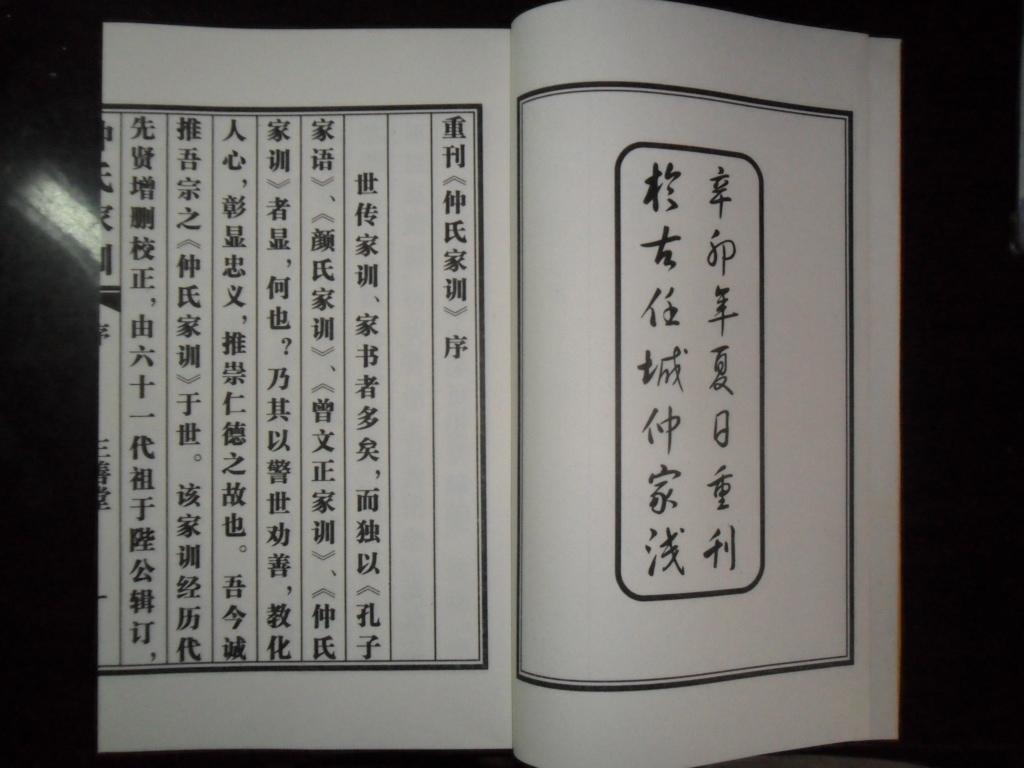 辛卯年夏日重刊
於古任城仲家浅
重刊《仲氏家训》序
世传家训、家书者多矣，而独以《孔子
家语》、《颜氏家训》、《曾文正家训》、《仲氏
家训》者显，何也？乃其以警世劝善，教化
人心，彰显忠义，推崇仁德之故也。吾今诚
推吾宗之《仲氏家训》于世。该家训经历代
先贤增删校正，由六十一代祖于陛公辑订，
仲氏家训 序 三善堂 一